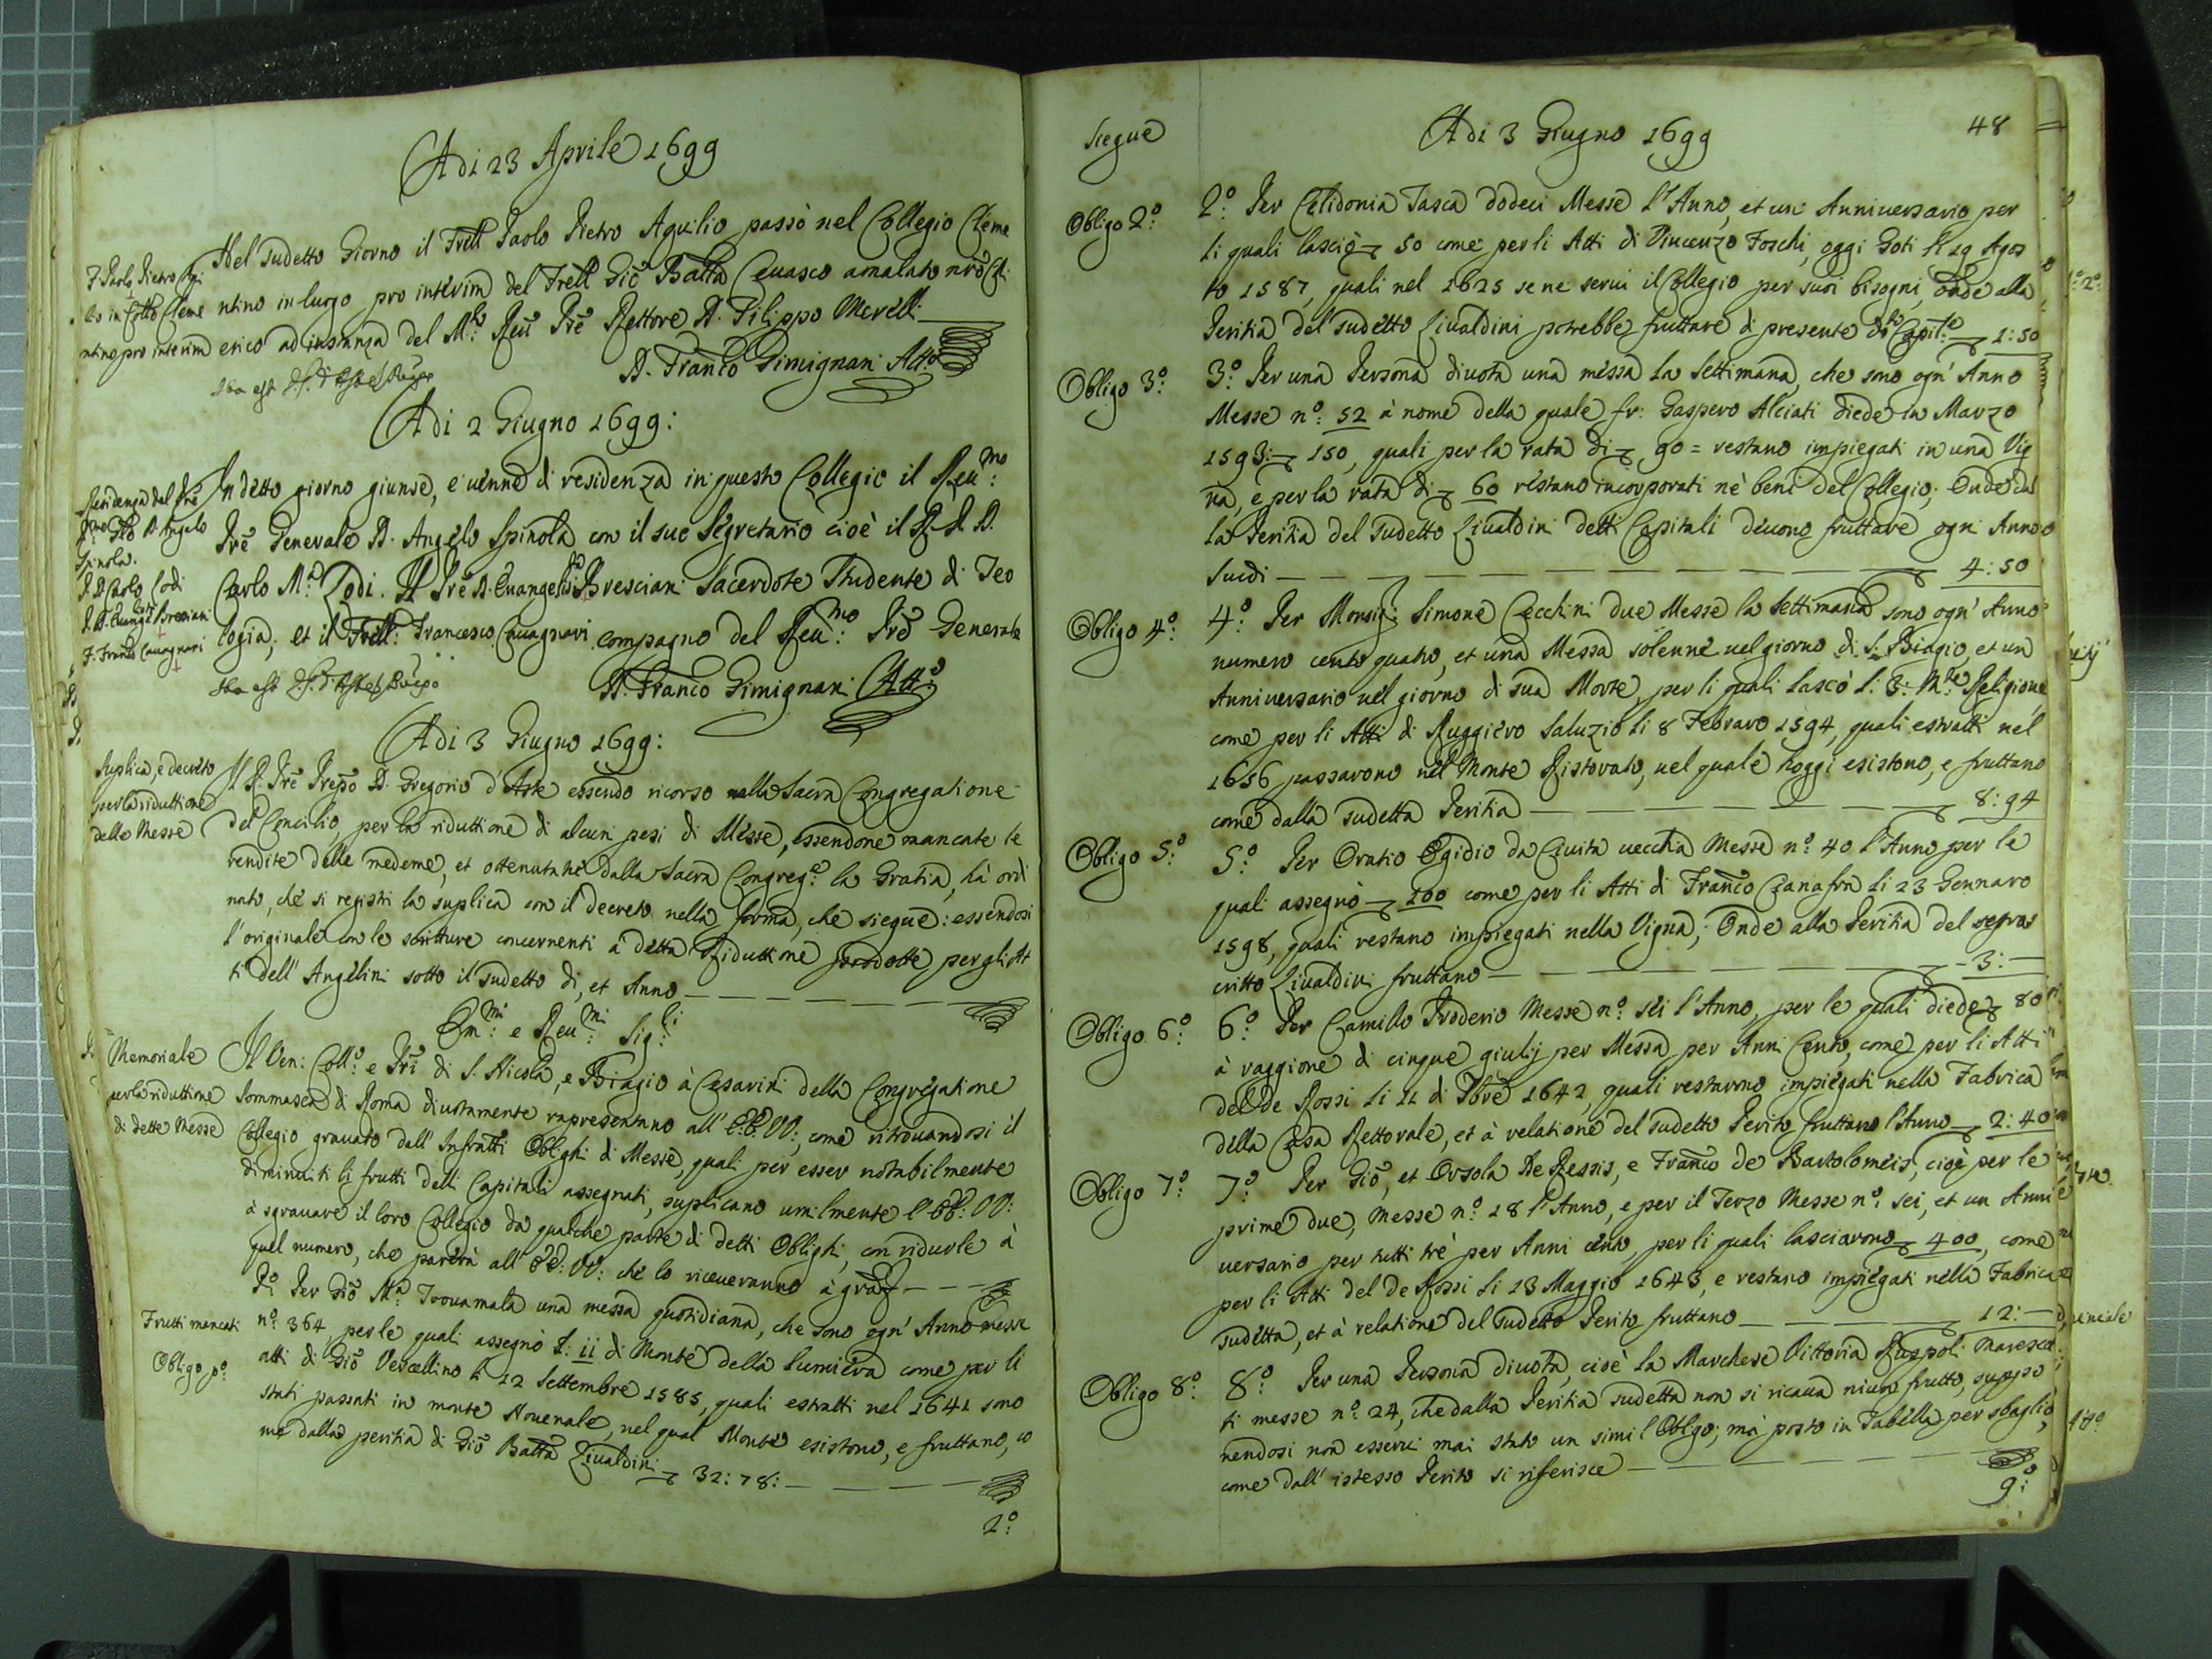 Adi 23 Aprile 1699
F. Paolo Pietro Aqui
lio in Collo Cleme
ntino pro interim
Nel sudetto Giorno il Frèll Paolo Pietro Aquilio passò nel Collegio Cleme
ntino in luogo pro intèrim del Frèll Gio Batta Ceuasco amalato nrō
erico ad instanza del M.to Reu Prē Rettore D. Filippo Merelli
D. Franco Gimignani Att.o
Ita est
Adi 2 Giugno 1699:
Residenza del Prē
Gnle D. Angelo
Spinola.
P. D. Carlo Lodi
P. D. Euangta Bresciani
F. Franco Cauagnari
In detto giorno giunse, e uenne di residenza in questo Collegio il Reu:mo
Prē Generale D. Angelo Spinola con il suo Segretario cioè il P. D.
Carlo M.a Lodi. Il Prē D. Euangelista Bresciani Sacerdote Studente di Teo
logia; et il Frèll: Francesco Cauagnari compagno del Reu:mo Prē Generale
D. Franco Gimignani Att.o
Ita est
Adi 3 Giugno 1699:
Suplica, e decreto
per la riduttione
delle Messe
Il P. Prē Prepō D. Gregorio d'Aste essendo ricorso nella Sacra Congregatione
del Concilio, per la riduttione di alcuni pesi di Messe, essendone mancate le
rendite delle medeme, et ottenutane dalla Sacra Congreg.e la Gratia, hà ordi
nato, che si registri la suplica con il decreto nella forma, che siegue: essendosi
l'originale con le scritture concernenti à detta Riduttione prodotte per gli At
ti dell' Angelini sotto il sudetto di, et Anno
Em:mi e Reu:mi Sig:ri
Memoriale
per la riduttione
di dette Messe
Il Ven: Coll.o e Pri di S. Nicola, e Biagio à Cesarini della Congregatione
Sommasca di Roma diuotamente rapresentano all' E.E. VV:, come ritrouandosi il
Collegio grauato dall' Infratti Oblighi di Messe, quali per esser notabilmente
diminuiti li frutti delli Capitali assegnati, suplicano umilmente l' EE: VV:
à sgrauare il loro Collegio da qualche parte di detti Oblighi, con ridurle à
quel numero, che parerà all' EE: VV: che lo riceueranno à graz
Frutti mancati
Obligo p.o
P.o Per Gio M.a Trouamala una messa quotidiana, che sono ogn' Anno messe
n.o 364, per le quali assegnò L: ii di Monte della Lumiera come per li
atti di Gio Vercellino li 12 Settembre 1585, quali estratti nel 1641 sono
stati passati in monte Nouenale, nel qual Monte esistono, e fruttano, co
me dalla peritia di Gio Batta Liualdini 32: 78:
2.o
Siegue
Adi 3 Giugno 1699
48
Obligo 2.o
2.o Per Celidonia Tasca dodeci Messe l'Anno, et un Anniuersario per
li quali lasciò 50 come per li Atti di Vincenzo Foschi, oggi Goti li 19 Agos
to 1587, quali nel 1625 se ne serui il Collegio per suoi bisogni, onde alla
Peritia del sudetto Liualdini potrebbe fruttare di presente d.to Capit.le 1: 50
Obligo 3.o
3.o Per una Persona diuota una messa la settimana, che sono ogn' Anno
Messe n.o 52 à nome della quale fr: Gaspero Alciati diede in Marzo
1593: 150, quali per la rata di 90 = restano impiegati in una Vig
na, e per la rata di 60 restano incorporati nè beni del Collegio; Onde da
la Peritia del sudetto Liualdini detti Capitali deuono fruttare ogni Anno
Scudi 4: 50
Obligo 4.o
4.o Per Monsig: Simone Cecchini due Messe la settimana sono ogn' Anno
numero cento quatro, et una Messa solenne nel giorno di S. Biagio, et un
Anniuersario nel giorno di sua Morte, per li quali lascò L: 3: M.te Religione
come per li Atti di Ruggiero Saluzio li 8 Febraro 1594, quali estratti nel
1656 passarono nel Monte Ristorato, nel quale hoggi esistono, e fruttano
come dalla sudetta Peritia 8: 94
Obligo 5.o
5.o Per Oratio Egidio da Ciuita uecchia Messe n.o 40 l'Anno per le
quali assegnò 100 come per li Atti di Franco Canafra li 23 Gennaro
1598, quali restano impiegati nella Vigna; Onde alla Peritia del sopras
critto Liualdini fruttano 3:
Obligo 6.o
6.o Per CamilloProderio Messe n.o sei l'Anno, per le quali diede 80
à raggione di cinque giulij per Messa per Anni Cento, come per li Atti
del De Rossi li 11 di 7bre 1642, quali restarono impiegati nella Fabrica
della Casa Rettorale, et à relatione del sudetto Perito fruttano l'Anno 2: 40
Obligo 7.o
7.o Per Gio, et Orsola De Ressis, e Franco de Bartolomeis, cioè per le
prime due, Messe n.o 18 l'Anno, e per il Terzo Messe n.o sei, et un Anni
uersario per tutti trè per Anni cento, per li quali lasciarono 400, come
per li Atti del De Rossi li 13 Maggio 1643, e restano impiegati nella Fabrica
sudetta, et à relatione del sudetto Perito fruttano 12:
Obligo 8.o
8.o Per una Persona diuota, cioè la Marchese Vittoria Ruspoli Marescot
ti messe n.o 24, che dalla Peritia sudetta non si ricaua niun frutto, suppo
nendosi non esserui mai stato un simil Obligo; mà posto in Tabella per sbaglio,
come dall' istesso Perito si riferisce
9.o